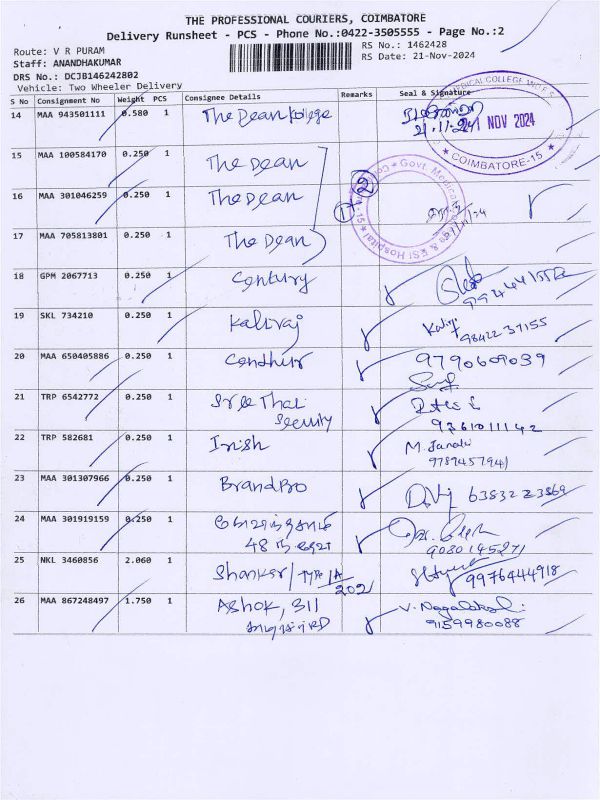 THE PROFESSIONAL COURIERS, COIMBATORE
Delivery Runsheet - PCS - Phone No.:0422-3505555 - Page No.:2
Route: V R PURAM
RS No.: 1462428
Staff: ANANDHAKUMAR
RS Date: 21-Nov-2024
DRS No.: DCJB146242802
Vehicle: Two Wheeler Delivery
S No Consignment No Weight PCS Consignee Details Remarks Seal & Signature
14 MAA 943501111 0.580 1 The Dean
21 NOV 2024
COIMBATORE-15
15 MAA 100584170 0.250 1 The Dean
16 MAA 301046259 0.250 1 The Dean
17 MAA 705813801 0.250 1 The Dean
18 GPM 2067713 0.250 1 Century
19 SKL 734210 0.250 1 Kaliraj
98422 37155
20 MAA 650405886 0.250 1
9790609039
21 TRP 6542772 0.250 1 Sree Thai
Security
9361011142
22 TRP 582681 0.250 1 Irish M. Janaki
9789457941
23 MAA 301307966 0.250 1 BrandBro 6383223869
24 MAA 301919159 0.250 1
48
9080145271
25 NKL 3460856 2.060 1 Shanker / Type 1A
202 9976444918
26 MAA 867248497 1.750 1 Ashok, 311 V. Nagalakshmi
9159980088